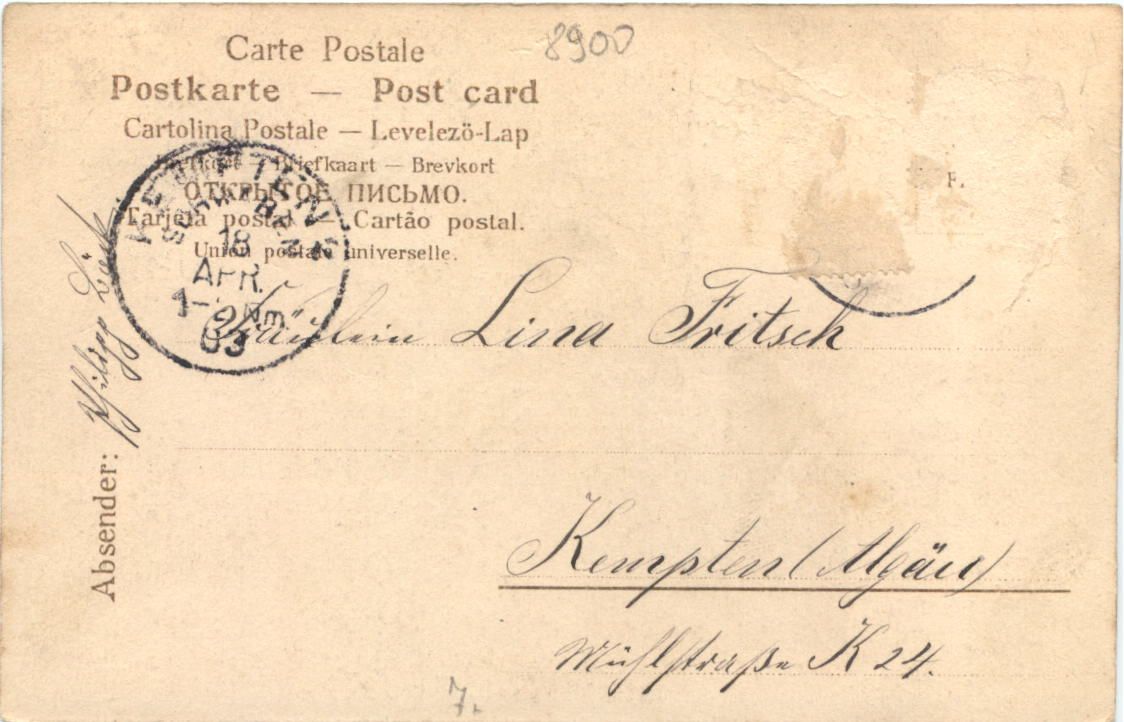 8900
Carte Postale
Postkarte — Post card
Cartolina Postale — Levelezö-Lap
Briefkaart — Brevkort
ОТКРЫТОЕ ПИСЬМО.
Tarjeta postal — Cartão postal.
Union postale universelle.
KEMPTEN
SCHWABEN
18
APR.
Nm
03
Fräulein Lina Fritsch
Kempten (Algäu)
Mühlstraße K 24.
Absender: Philipp
7.